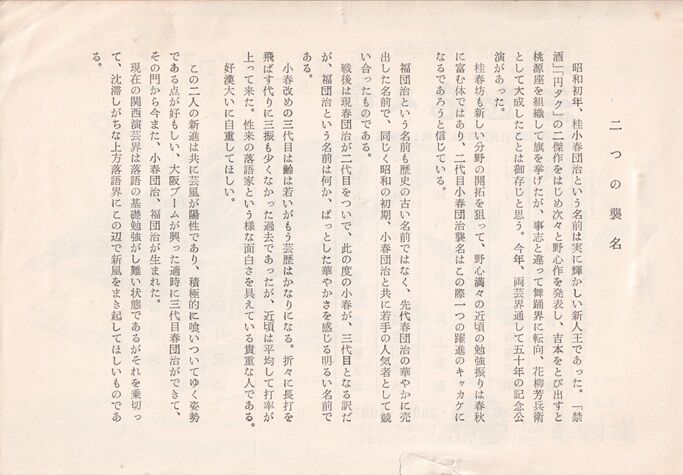 二つの襲名
昭和初年、桂小春団治という名前は実に輝かしい新人王であった。「禁
酒」「円タク」の二傑作をはじめ次々と野心作を発表し、吉本をとび出すと
桃源座を組織して旗を挙げたが、事志と違って舞踊界に転向、花柳芳兵衛
として大成したことは御存じと思う。今年、両芸界通して五十年の記念公
演があった。
桂春坊も新しい分野の開拓を狙って、野心満々の近頃の勉強振りは春秋
に富む体ではあり、二代目小春団治襲名はこの際一つの躍進のキッカケに
なるであろうと信じている。
福団治という名前も歴史の古い名前ではなく、先代春団治の華やかに売
出した名前で、同じく昭和の初期、小春団治と共に若手の人気者として競
い合ったものである。
戦後は現春団治が二代目をついで、此の度の小春が、三代目となる訳だ
が、福団治という名前は何か、ぱっとした華やかさを感じる明るい名前で
ある。
小春改めの三代目は齢は若いがもう芸歴はかなりになる。折々に長打を
飛ばす代りに三振も少くなかった過去であったが、近頃は平均して打率が
上って来た。性来の落語家という様な面白さを具えている貴重な人である。
好漢大いに自重してほしい。
この二人の新進は共に芸風が陽性であり、積極的に喰いついてゆく姿勢
である点が好もしい、大阪ブームが興った適時に三代目春団治ができて、
その門から今また、小春団治、福団治が生まれた。
現在の関西演芸界は落語の基礎勉強がし難い状態であるがそれを乗切っ
て、沈滞しがちな上方落語界にこの辺で新風をまき起してほしいものであ
る。